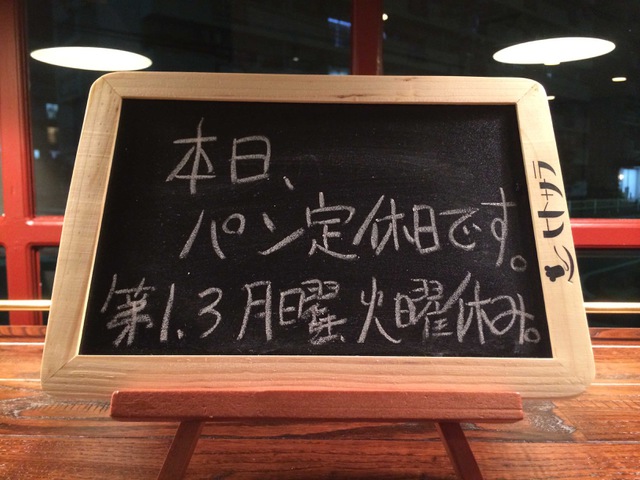 本日、
パン定休日です。
第1.3月曜火曜休み。